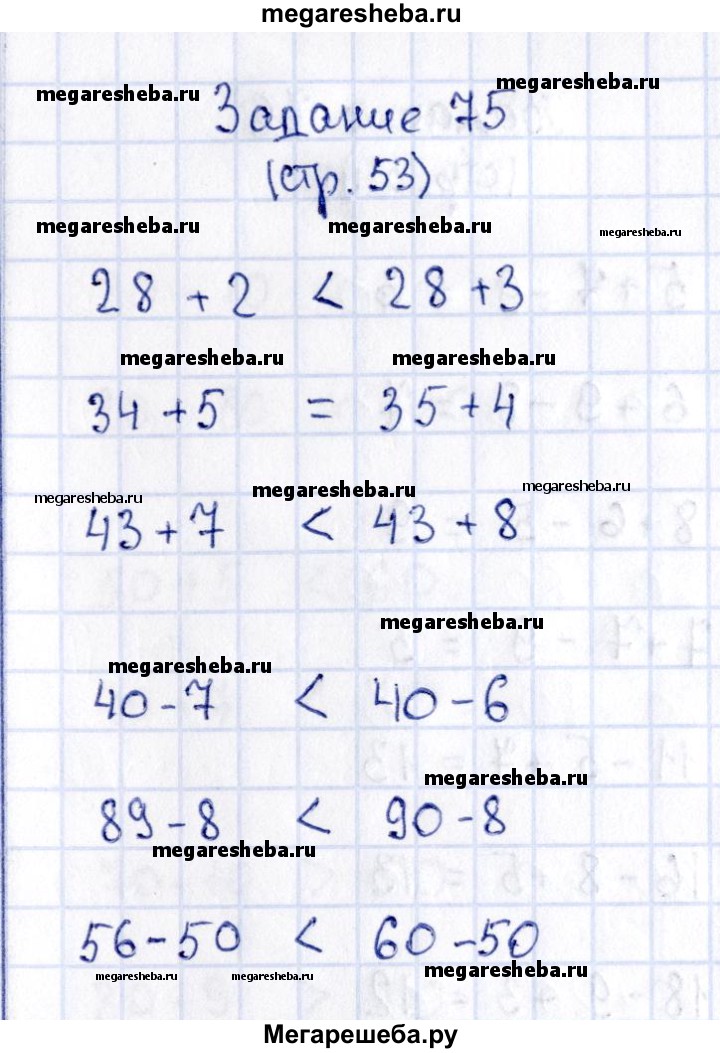 megaresheba.ru
megaresheba.ru
megaresheba.ru
Задание 75
(стр. 53)
megaresheba.ru megaresheba.ru megaresheba.ru
28 + 2 < 28 + 3
megaresheba.ru megaresheba.ru
34 + 5 = 35 + 4
megaresheba.ru megaresheba.ru megaresheba.ru
43 + 7 < 43 + 8
megaresheba.ru
megaresheba.ru
40 - 7 < 40 - 6
megaresheba.ru
89 - 8 < 90 - 8
megaresheba.ru
56 - 50 < 60 - 50
megaresheba.ru megaresheba.ru megaresheba.ru
Мегарешеба.ру